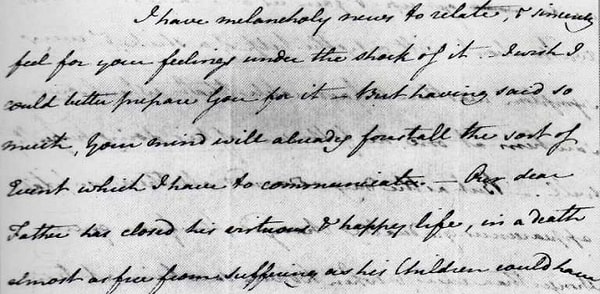 I have melancholy news to relate, & sincerely
feel for your feelings under the shock of it. — I wish I
could better prepare You for it — But having said so
much, Your mind will already forestall the sort of
Event which I have to communicate. — Our dear
Father has closed his virtuous & happy life, in a death
almost as free from suffering as his Children could have